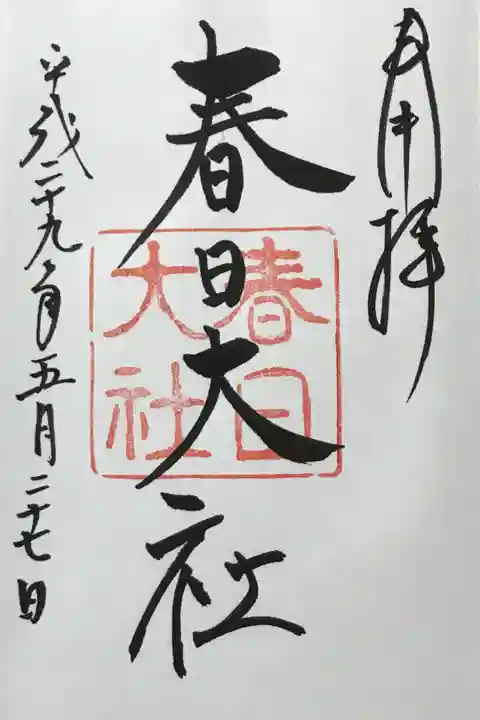 奉拝
春日大社
春日
大社
平成二十九年五月二十七日